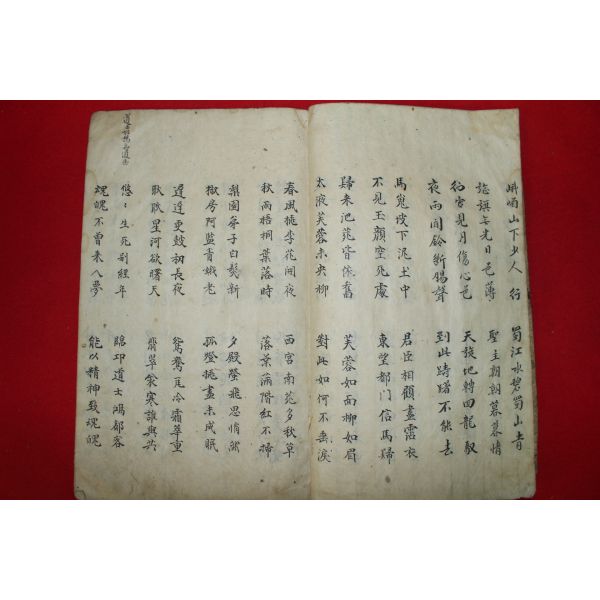 峨嵋山下少人行 蜀江水碧蜀山青
旌旗无光日色薄 聖主朝朝暮暮情
行宮見月傷心色 天旋地轉回龍馭
夜雨聞鈴斷腸聲 到此躊躇不能去
馬嵬坡下泥土中 君臣相顧盡霑衣
不見玉顔空死處 東望都門信馬歸
歸來池苑皆依舊 芙蓉如面柳如眉
太液芙蓉未央柳 對此如何不垂淚
春風桃李花開夜 西宮南苑多秋草
秋雨梧桐葉落時 落葉滿階紅不掃
梨園弟子白髮新 夕殿螢飛思悄然
椒房阿監青娥老 孤燈挑盡未成眠
遲遲更鼓初長夜 鴛鴦瓦冷霜華重
耿耿星河欲曙天 翡翠衾寒誰與共
悠〻生死別經年 臨邛道士鴻都客
魂魄不曾來入夢 能以精神致魂魄